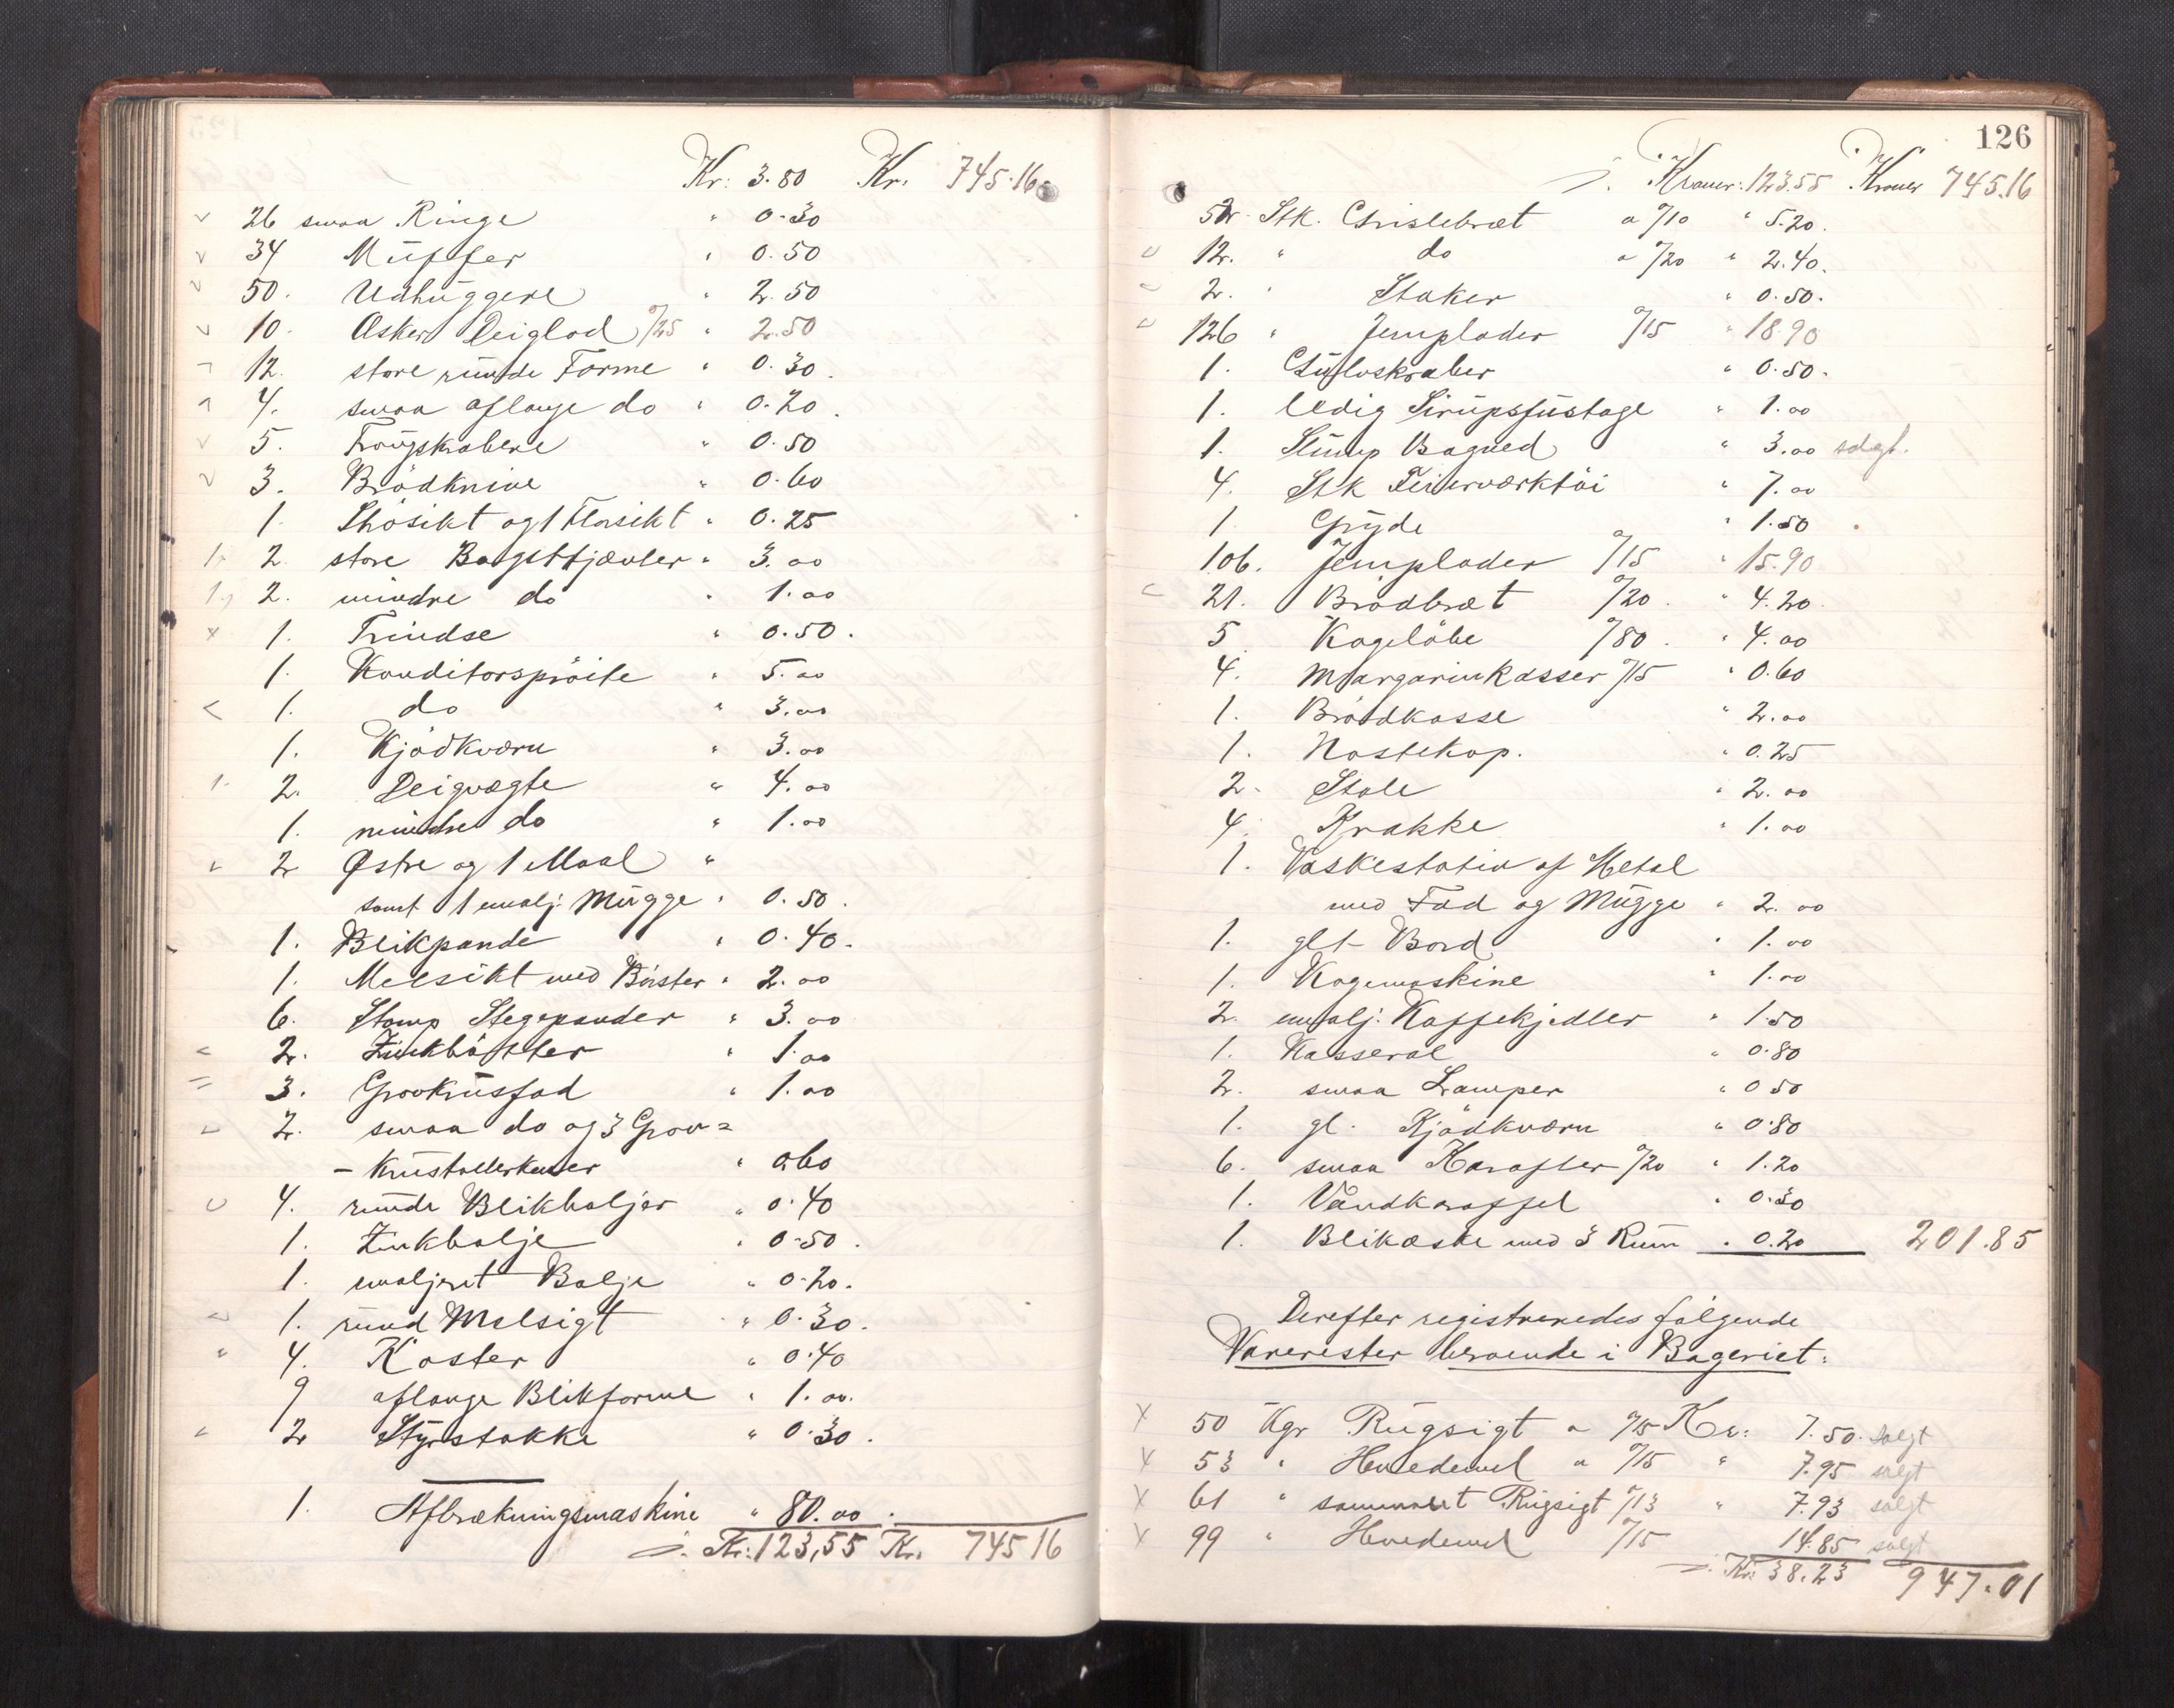 Kr: 3.80 Kr. 745.16
26 smaa Ringe " 0.30
34 Muffer " 0.50
50. Udhuggere " 2.50
10. Asker Deiglod %25 " 2.50
12. store runde Forme " 0.30.
4. smaa aflange do " 0.20.
5. Trougskabere " 0.50
3. Brödknive " 0.60
1. Shösikt og 1 Florsikt " 0.25
2. store Bagstfjævler " 3.00
2. mindre do " 1.00
1. Trindse " 0.50.
1. Konditorspröite " 5.00
1. do " 3.00
1. Kjödkværn " 3.00
2. Deigvægte " 4.00
1. mindre do " 1.00
2 Østre og 1 Maal "
samt 1 emalj. Mugge " 0.50.
1. Blikpande " 0.40.
1. Melsikt med Börster " 2.00
6. Stomp Stegepander " 3.00
2. Zinkbötter " 1.00
3. Grovkrusfad " 1.00
2. smaa do og 3 Grov=
- Krustallerkener " 0.60
4. runde Blikbaljer " 0.40
1. Zinkbalje " 0.50.
1. emaljeret Balje " 0.20.
1. rund Melsigt " 0.30.
4. Koster " 0.40
9 aflange Blikforme " 1.00.
2 Styrstokke " 0.30.
1. Afbrækningsmaskine " 80.00.
Kr: 123,55 Kr. 745 16
126
Kroner: 123.55 Kroner 745.16
52 Stk. Christebræt a %10 " 5.20.
12. " do a %20 " 2.40.
2. " Staker " 0.50.
126 " Jernplader %15 " 18.90
1. Gulvskraber " 0.50.
1. ledig Sirupsfustage " 1.00
1. Slump Bagved " 3.00 solgt.
4. Stk Feierværktöi " 7.00
1. Gryde " 1.50
106. Jernplader %15 " 15.90
21. Brödbræt %20. " 4.20
5. Kagelöbe %80. " 4.00
4. Margarinkasser %15 " 0.60
1. Brödkasse " 2.00
1. Nostekop. " 0.25
2. Stole " 2.00
4. Krakke " 1.00
1. Vaskestativ af Metal
med Fad og Mugge " 2.00
1. glt Bord " 1.00
1. Kogemaskine " 1.00
2. emalj. Kaffekjedler " 1.50
1. Kasserol " 0.80
2. smaa Lamper " 0 50
1. gl. Kjödkværn " 0.80
6. smaa Karafler %20 " 1.20
1. Vandkaraffel " 0.30
1. Blikæske med 3 Rum " 0.20 201.85
Derefter registreredes følgende
Varerester beroende i Bageriet:
X 50 Kgr Rugsigt a %15 Kr: 7.50. solgt
X 53 " Hvedemel a %15 " 7.95 solgt
X 61 " sammalt Rugsigt %13 " 7.93 solgt
X 99 " Hvedemel %15 14.85 solgt
Kr: 38.23 947.01